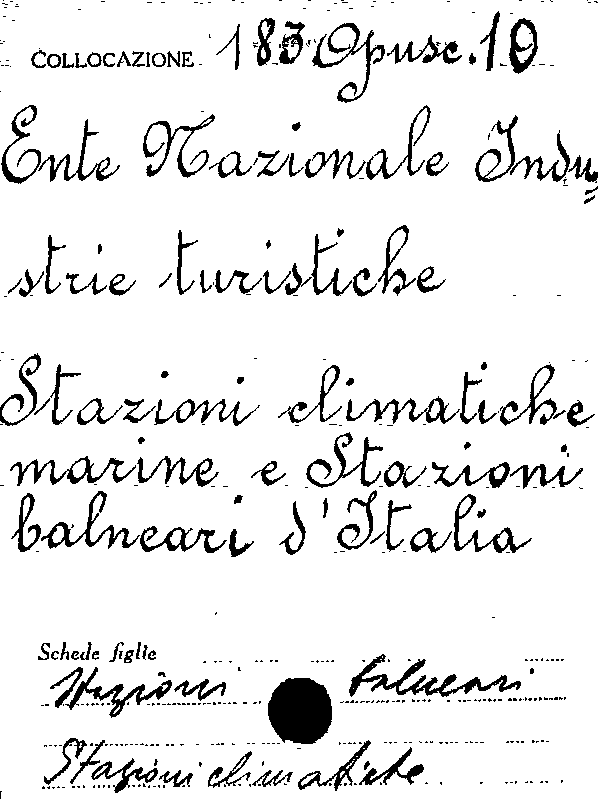 COLLOCAZIONE 183 Opusc. 10
Ente Nazionale Indu=
strie turistiche
Stazioni climatiche
marine e Stazioni
balneari d'Italia
Schede figlie
Stazioni balneari
Stazioni climatiche